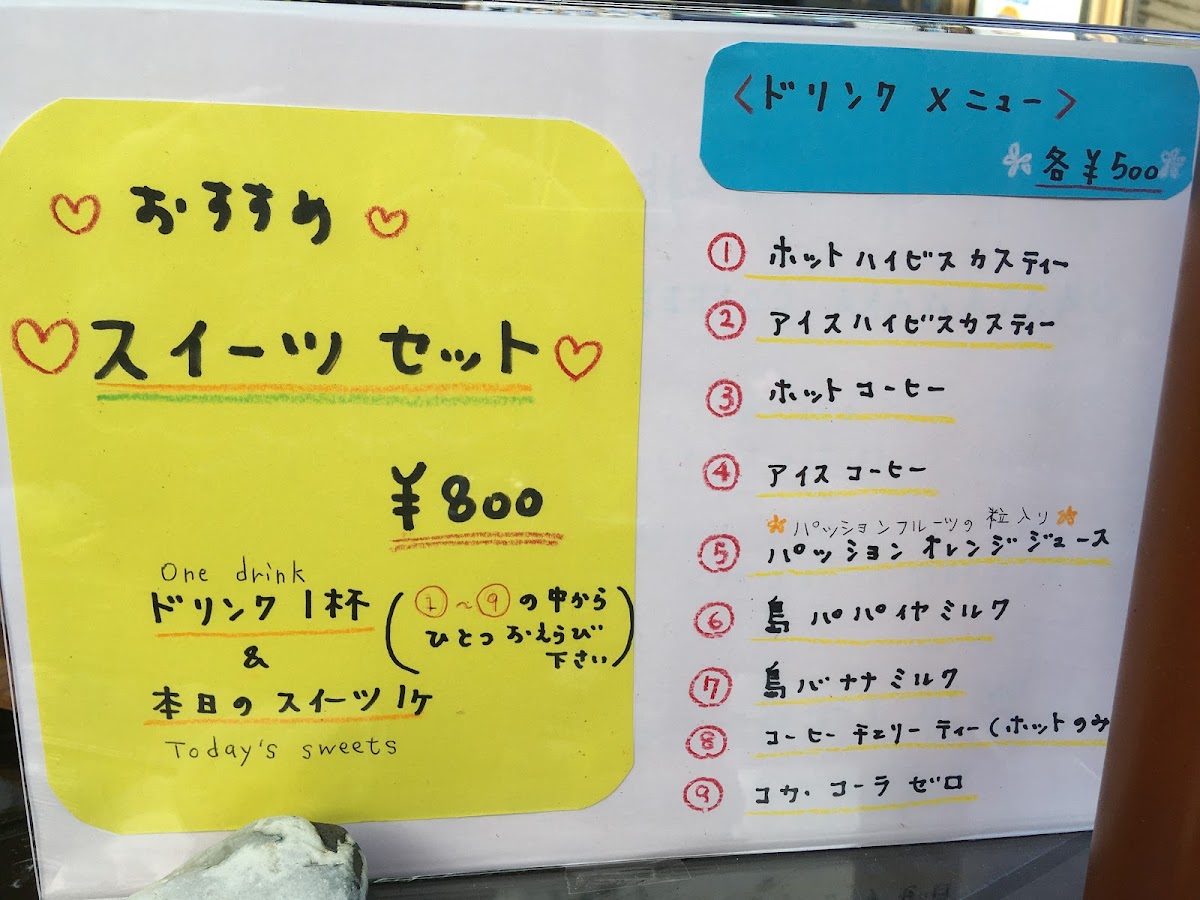 おすすめ
スイーツ セット
¥800
One drink
ドリンク 1杯 (①～⑨の中から
ひとつ おえらび
下さい)
&
本日の スイーツ 1ケ
Today's sweets
<ドリンク メニュー>
各¥500
① ホットハイビスカスティー
② アイスハイビスカスティー
③ ホット コーヒー
④ アイス コーヒー
パッションフルーツの粒入り
⑤ パッション オレンジジュース
⑥ 島 パパイヤミルク
⑦ 島バナナミルク
⑧ コーヒー チェリー ティー(ホットのみ
⑨ コカ・コーラ ゼロ